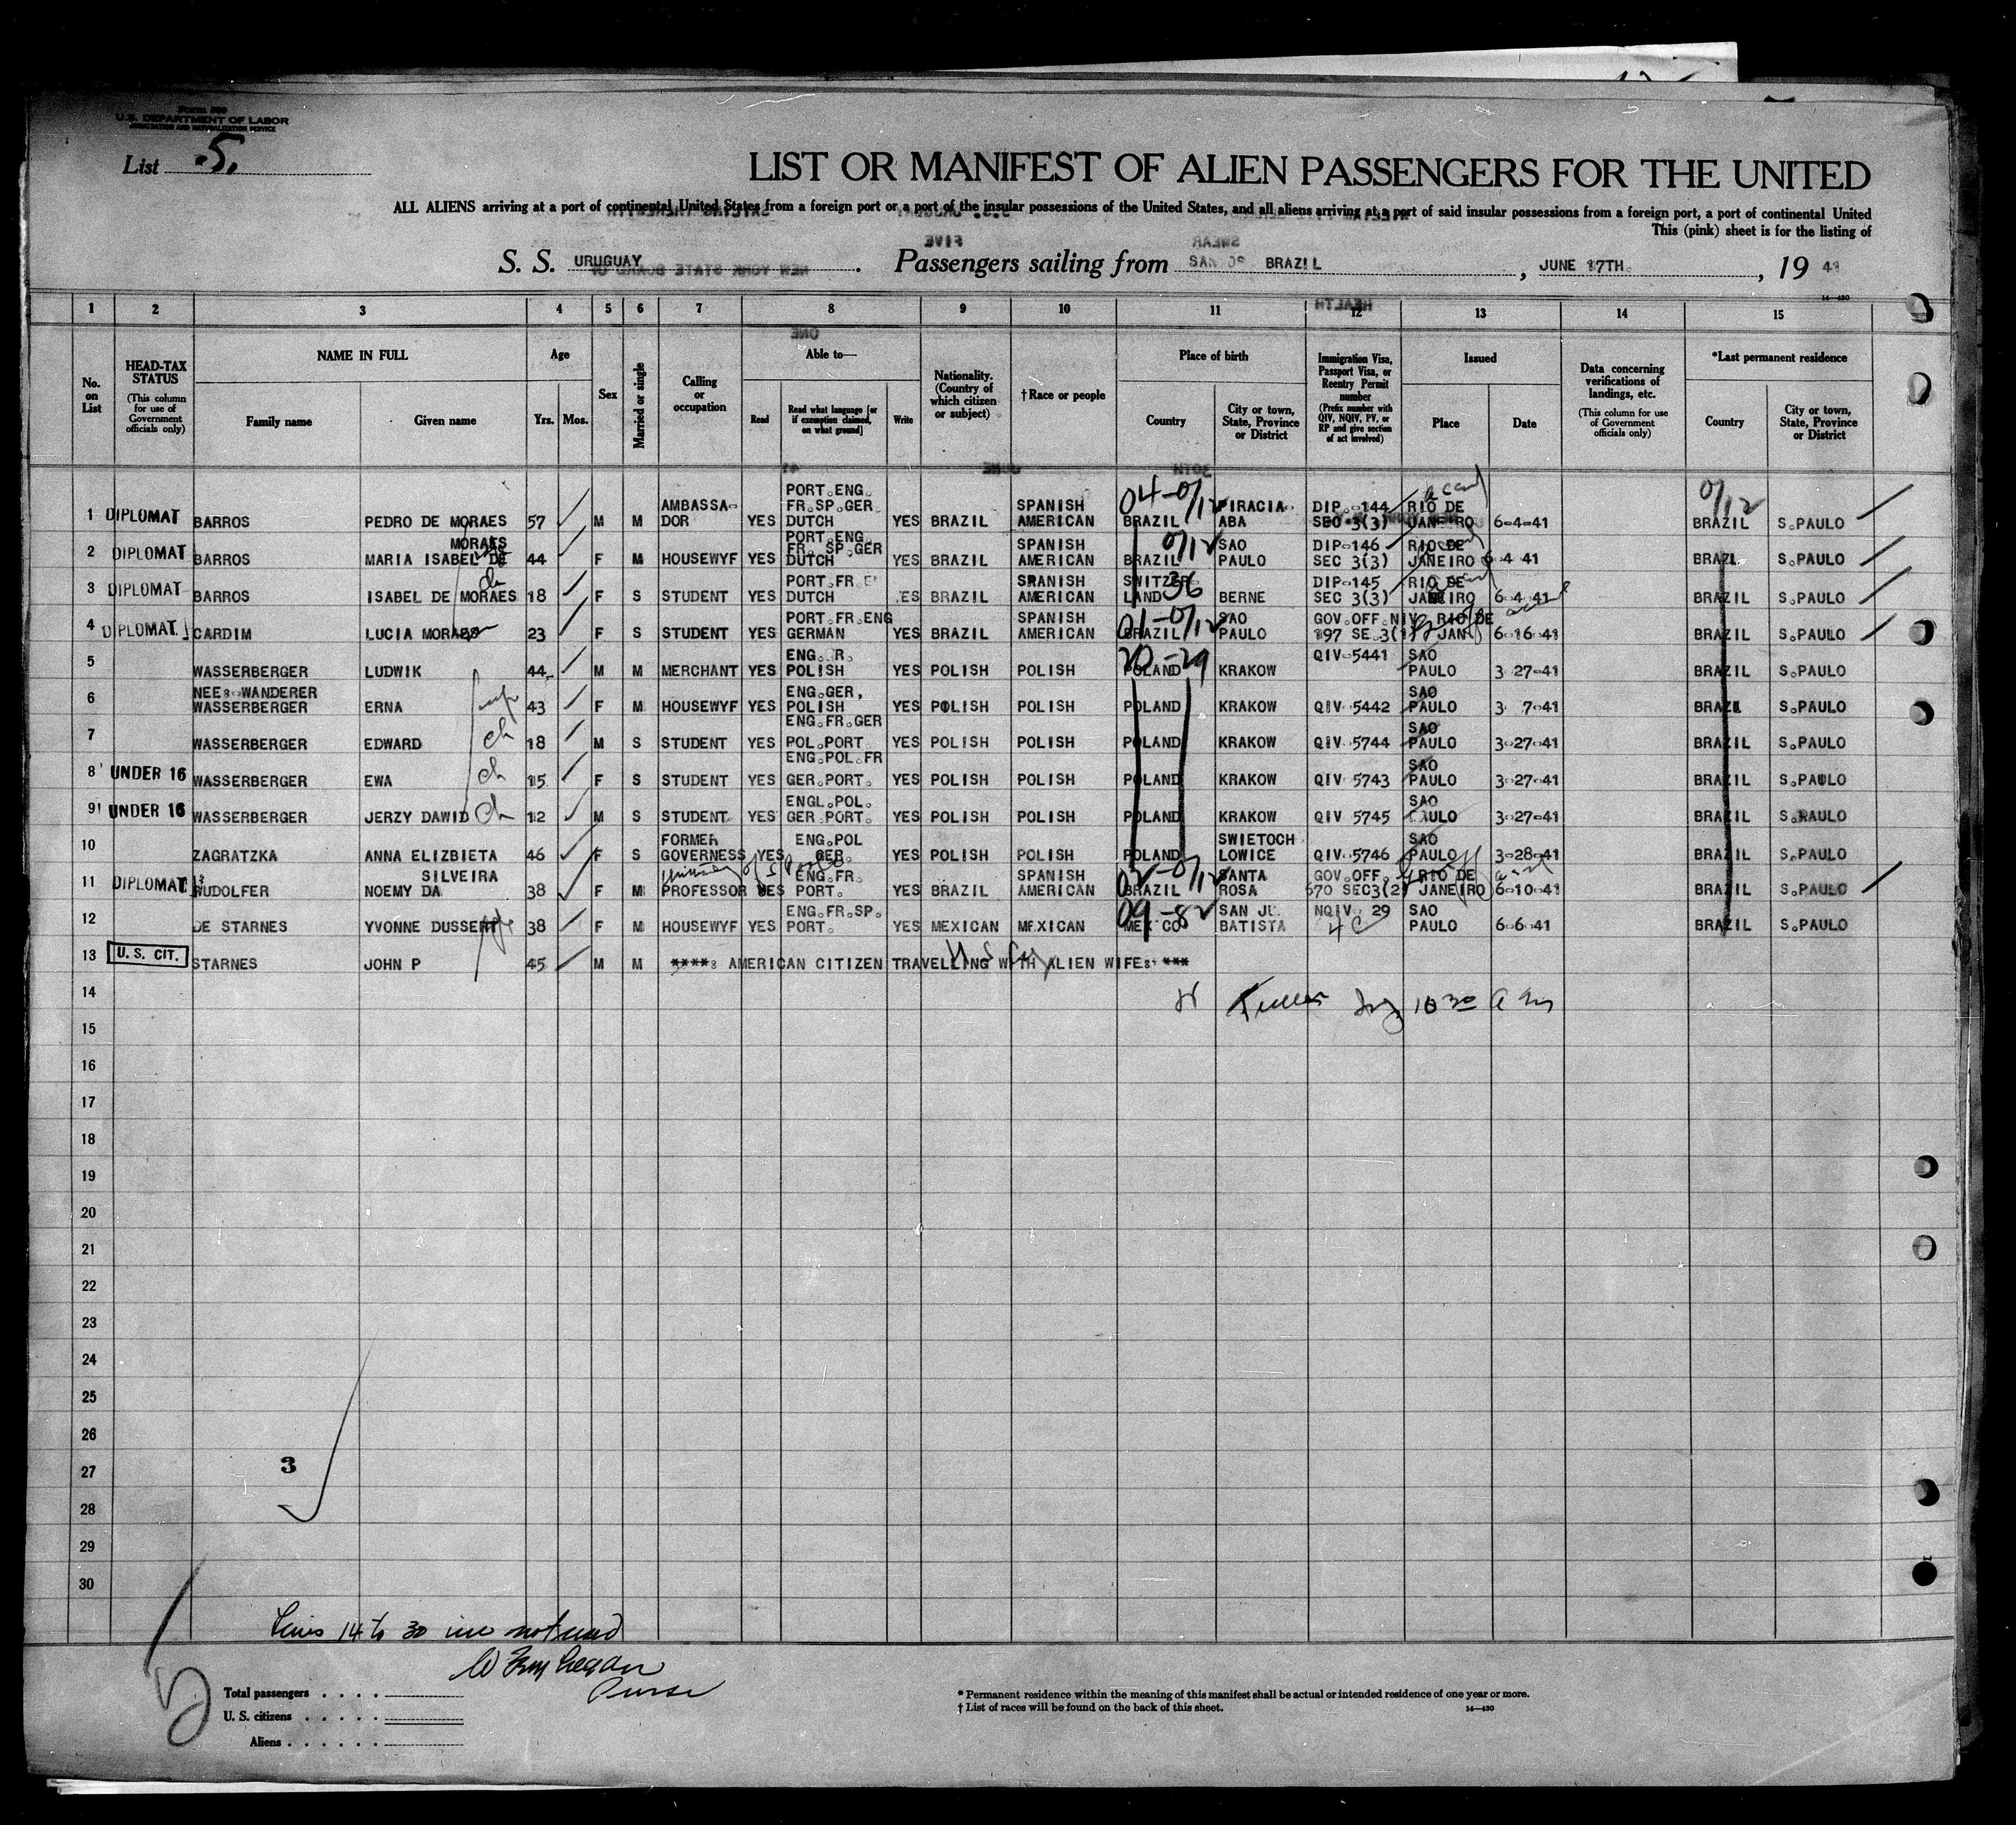 Form 500
U.S. DEPARTMENT OF LABOR
IMMIGRATION AND NATURALIZATION SERVICE
List 5.
LIST OR MANIFEST OF ALIEN PASSENGERS FOR THE UNITED
ALL ALIENS arriving at a port of continental United States from a foreign port or a port of the insular possessions of the United States, and all aliens arriving at a port of said insular possessions from a foreign port, a port of continental United
This (pink) sheet is for the listing of
S. S. URUGUAY. Passengers sailing from BRAZIL, JUNE 17TH, 19 41
14—430
1 2 3 4 5 6 7 8 9 10 11 12 13 14 15
No. on List
HEAD-TAX STATUS (This column for use of Government officials only)
NAME IN FULL Family name Given name
Age Yrs. Mos.
Sex
Married or single
Calling or occupation
Able to— Read Read what language [or if exemption claimed, on what ground] Write
Nationality. (Country of which citizen or subject)
†Race or people
Place of birth Country City or town, State, Province or District
Immigration Visa, Passport Visa, or Reentry Permit number (Prefix number with QIV, NQIV, PV, or RP and give section of act involved)
Issued Place Date
Data concerning verifications of landings, etc. (This column for use of Government officials only)
*Last permanent residence Country City or town, State, Province or District
1 DIPLOMAT BARROS PEDRO DE MORAES 57 M M AMBASSA-DOR YES PORT.ENG. FR.SP.GER DUTCH YES BRAZIL SPANISH AMERICAN 04-0/12 BRAZIL PIRACIA ABA DIP.-144 SEC 3(3) RIO DE JANEIRO 6-4-41 0/12 BRAZIL S.PAULO
2 DIPLOMAT BARROS MARIA ISABEL DE MORAES 44 F M HOUSEWYF YES PORT.ENG. FR. SP.GER DUTCH YES BRAZIL SPANISH AMERICAN 0/12 BRAZIL SAO PAULO DIP-146 SEC 3(3) RIO DE JANEIRO 6 4 41 BRAZIL S.PAULO
3 DIPLOMAT BARROS ISABEL DE MORAES 18 F S STUDENT YES PORT.FR. DUTCH YES BRAZIL SPANISH AMERICAN SWITZER LAND 36 BERNE DIP-145 SEC 3(3) RIO DE JANEIRO 6-4-41 BRAZIL S.PAULO
4 DIPLOMAT. CARDIM LUCIA MORAES 23 F S STUDENT YES PORT.FR.ENG GERMAN YES BRAZIL SPANISH AMERICAN 01-0/12 BRAZIL SAO PAULO GOV.OFF.NIV. RIO DE JAN 6-16-41 BRAZIL S.PAULO
5 WASSERBERGER LUDWIK 44 M M MERCHANT YES ENG. POLISH YES POLISH POLISH 20-29 POLAND KRAKOW QIV-5441 SAO PAULO 3-27-41 BRAZIL S.PAULO
6 NEE: WANDERER WASSERBERGER ERNA 43 F M HOUSEWYF YES ENG.GER, POLISH YES POLISH POLISH POLAND KRAKOW QIV 5442 SAO PAULO 3 7-41 BRAZIL S.PAULO
7 WASSERBERGER EDWARD ch 18 M S STUDENT YES ENG.FR.GER POL.PORT YES POLISH POLISH POLAND KRAKOW QIV 5744 SAO PAULO 3-27-41 BRAZIL S.PAULO
8 UNDER 16 WASSERBERGER EWA ch 15 F S STUDENT YES ENG.POL.FR GER.PORT. YES POLISH POLISH POLAND KRAKOW QIV 5743 SAO PAULO 3-27-41 BRAZIL S.PAULO
9 UNDER 16 WASSERBERGER JERZY DAWID ch 12 M S STUDENT YES ENGL.POL. GER.PORT. YES POLISH POLISH POLAND KRAKOW QIV 5745 SAO PAULO 3-27-41 BRAZIL S.PAULO
10 ZAGRATZKA ANNA ELIZBIETA 46 F S FORMER GOVERNESS YES ENG.POL GER. YES POLISH POLISH POLAND SWIETOCH LOWICE QIV.5746 SAO PAULO 3-28-41 BRAZIL S.PAULO
11 DIPLOMAT RUDOLFER NOEMY DA SILVEIRA 38 F M PROFESSOR YES ENG.FR. PORT. YES BRAZIL SPANISH AMERICAN 02-0/12 BRAZIL SANTA ROSA GOV.OFF. 670 SEC3(2) RIO DE JANEIRO 6-10-41 BRAZIL S.PAULO
12 DE STARNES YVONNE DUSSERT 38 F M HOUSEWYF YES ENG.FR.SP. PORT. YES MEXICAN MEXICAN 09-82 MEXICO SAN JU. BATISTA NQIV 29 4C SAO PAULO 6-6-41 BRAZIL S.PAULO
13 U. S. CIT. STARNES JOHN P 45 M M ****: AMERICAN CITIZEN TRAVELLING WITH ALIEN WIFE: ***
14 10 30 a m
15
16
17
18
19
20
21
22
23
24
25
26
27 3
28
29
30
Lines 14 to 30 inc not used
Purser
Total passengers
U. S. citizens
Aliens
* Permanent residence within the meaning of this manifest shall be actual or intended residence of one year or more.
† List of races will be found on the back of this sheet.
14—430